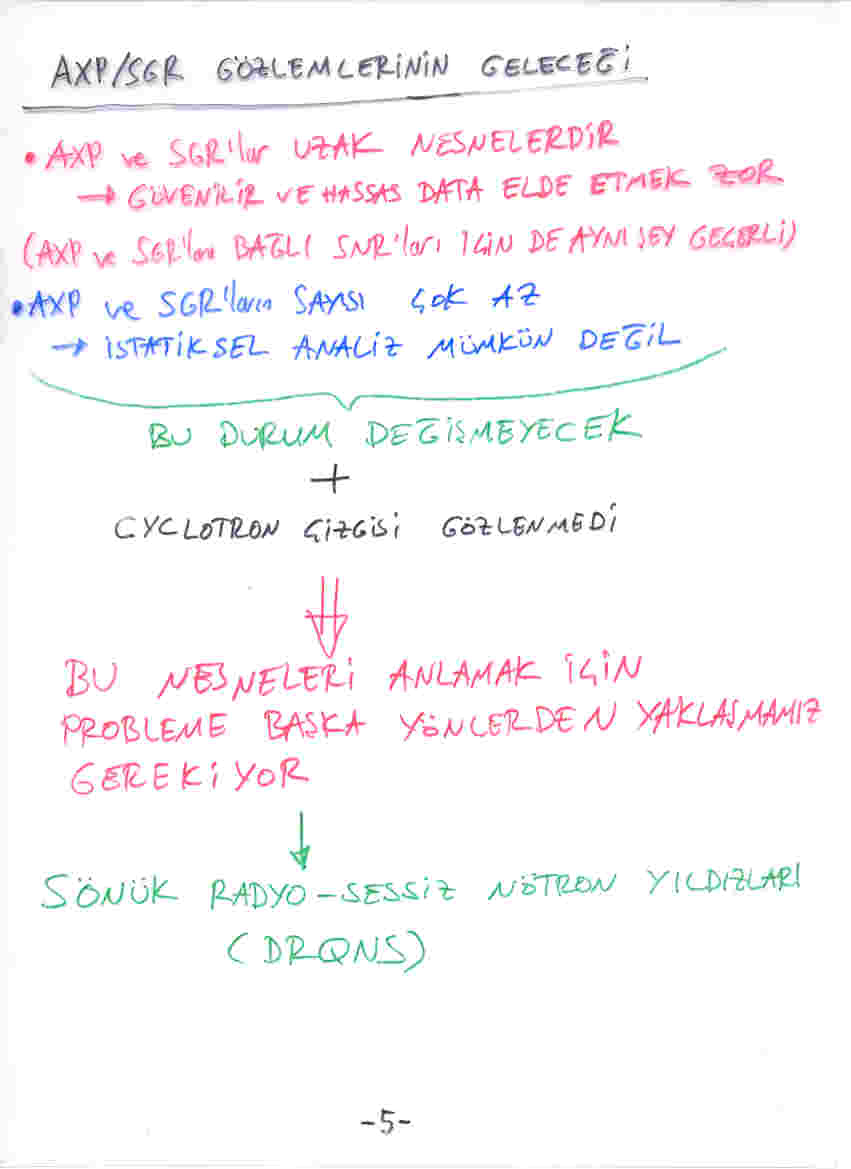 AXP/SGR GÖZLEMLERİNİN GELECEĞİ
• AXP ve SGR'lar UZAK NESNELERDİR
→ GÜVENİLİR VE HASSAS DATA ELDE ETMEK ZOR
(AXP ve SGR'ların BAĞLI SNR'ları İÇİN DE AYNI ŞEY GEÇERLİ)
• AXP ve SGR'ların SAYISI ÇOK AZ
→ İSTATİKSEL ANALİZ MÜMKÜN DEĞİL
BU DURUM DEĞİŞMEYECEK
+
CYCLOTRON ÇİZGİSİ GÖZLENMEDİ
⇓
BU NESNELERİ ANLAMAK İÇİN
PROBLEME BAŞKA YÖNLERDEN YAKLAŞMAMIZ
GEREKİYOR
↓
SÖNÜK RADYO-SESSİZ NÖTRON YILDIZLARI
(DRQNS)
-5-